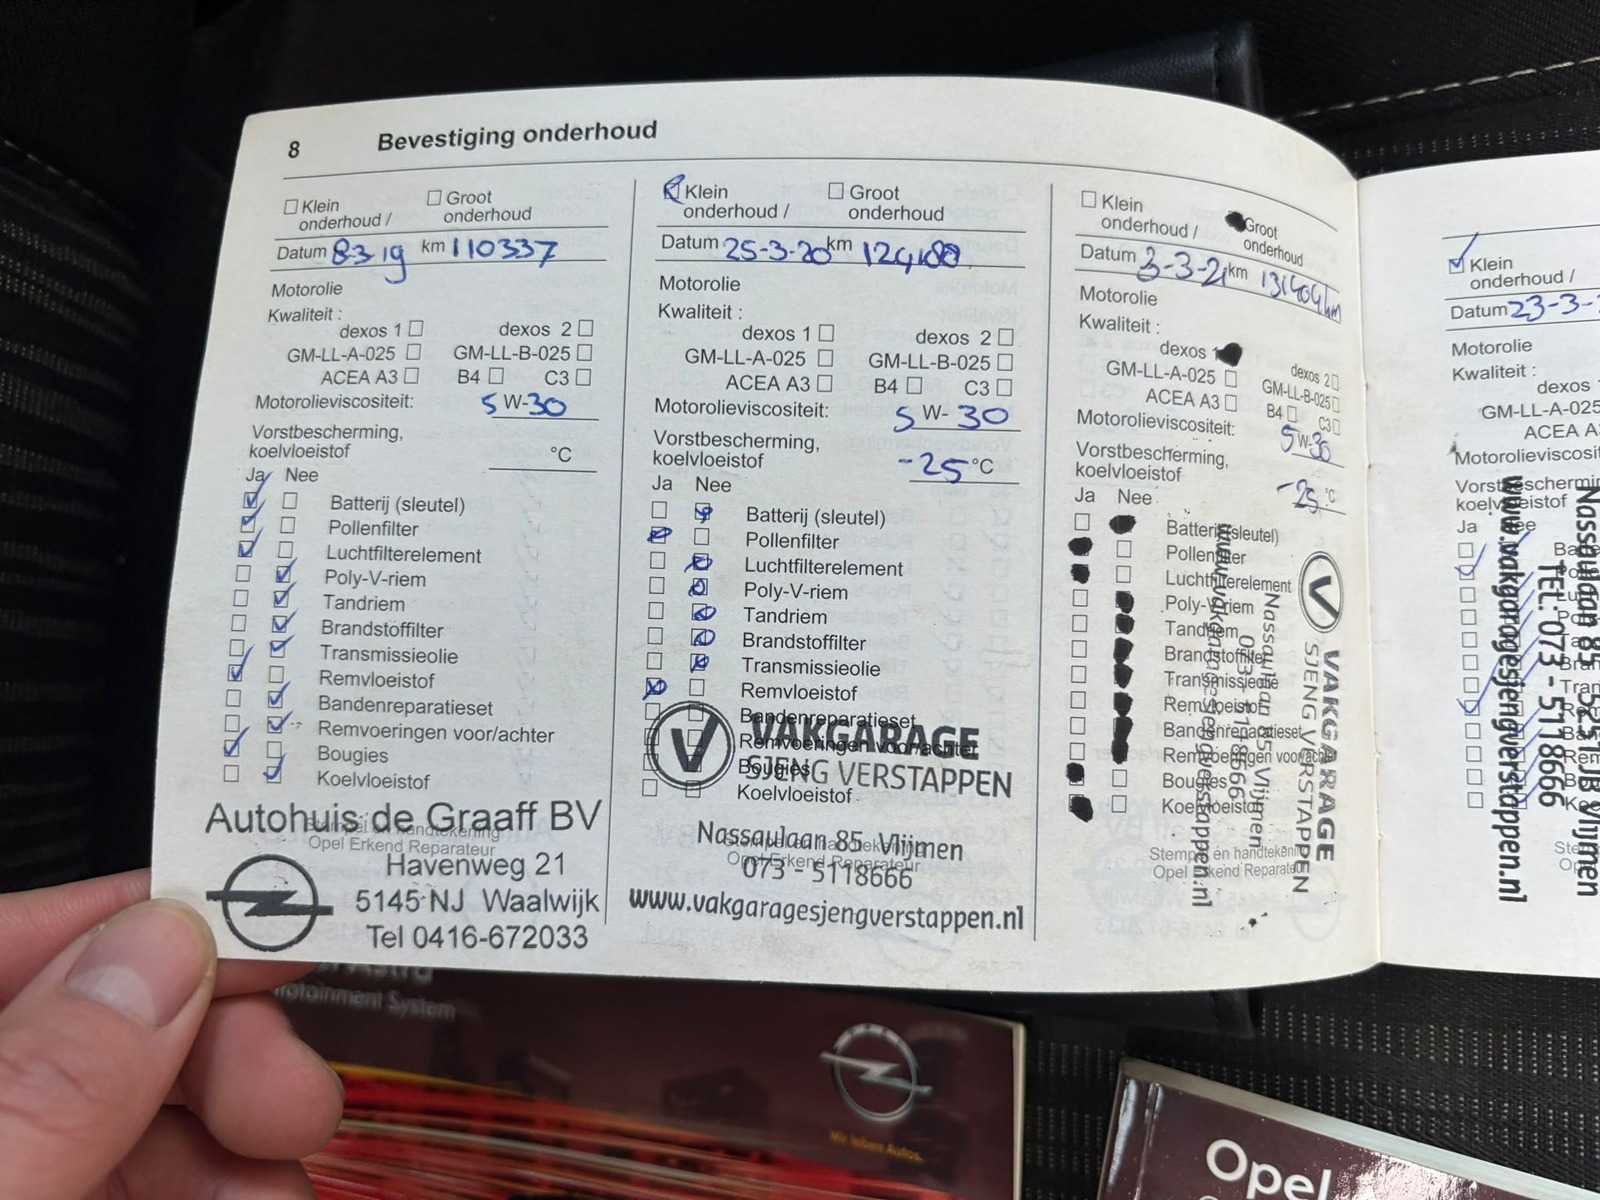 8 Bevestiging onderhoud
Klein onderhoud / Groot onderhoud
Datum 8-3-19 km 110337
Motorolie
Kwaliteit :
dexos 1 dexos 2
GM-LL-A-025 GM-LL-B-025
ACEA A3 B4 C3
Motorolieviscositeit: 5 W-30
Vorstbescherming,
koelvloeistof °C
Ja Nee
Batterij (sleutel)
Pollenfilter
Luchtfilterelement
Poly-V-riem
Tandriem
Brandstoffilter
Transmissieolie
Remvloeistof
Bandenreparatieset
Remvoeringen voor/achter
Bougies
Koelvloeistof
Autohuis de Graaff BV
Stempel en handtekening
Opel Erkend Reparateur
Havenweg 21
5145 NJ Waalwijk
Tel 0416-672033
Klein onderhoud / Groot onderhoud
Datum 25-3-20 km
Motorolie
Kwaliteit :
dexos 1 dexos 2
GM-LL-A-025 GM-LL-B-025
ACEA A3 B4 C3
Motorolieviscositeit: 5 W- 30
Vorstbescherming,
koelvloeistof -25 °C
Ja Nee
Batterij (sleutel)
Pollenfilter
Luchtfilterelement
Poly-V-riem
Tandriem
Brandstoffilter
Transmissieolie
Remvloeistof
Bandenreparatieset
Remvoeringen voor/achter
Bougies
Koelvloeistof
VAKGARAGE
SJENG VERSTAPPEN
Nassaulaan 85 Vlijmen
Stempel en handtekening
Opel Erkend Reparateur
073 - 5118666
www.vakgaragesjengverstappen.nl
Klein onderhoud / Groot onderhoud
Datum 3-3-21 km 131404 km
Motorolie
Kwaliteit :
dexos 1 dexos 2
GM-LL-A-025 GM-LL-B-025
ACEA A3 B4 C3
Motorolieviscositeit: 5 W-30
Vorstbescherming,
koelvloeistof -25 °C
Ja Nee
Batterij (sleutel)
Pollenfilter
Luchtfilterelement
Poly-V-riem
Tandriem
Brandstoffilter
Transmissieolie
Remvloeistof
Bandenreparatieset
Remvoeringen voor/achter
Bougies
Koelvloeistof
Stempel en handtekening
Opel Erkend Reparateur
VAKGARAGE
SJENG VERSTAPPEN
Nassaulaan 85 Vlijmen
073 - 5118666
www.vakgaragesjengverstappen.nl
Klein
onderhoud /
Datum 23-3-
Motorolie
Kwaliteit :
dexos
GM-LL-A-025
ACEA A
Motorolieviscosit
koelvloeistof
Ja Nee
Nassaulaan 85 5251JB Vlijmen
TEL. 073 - 5118666
www.vakgaragesjengverstappen.nl
Infotainment System
Wir leben Autos.
Opel